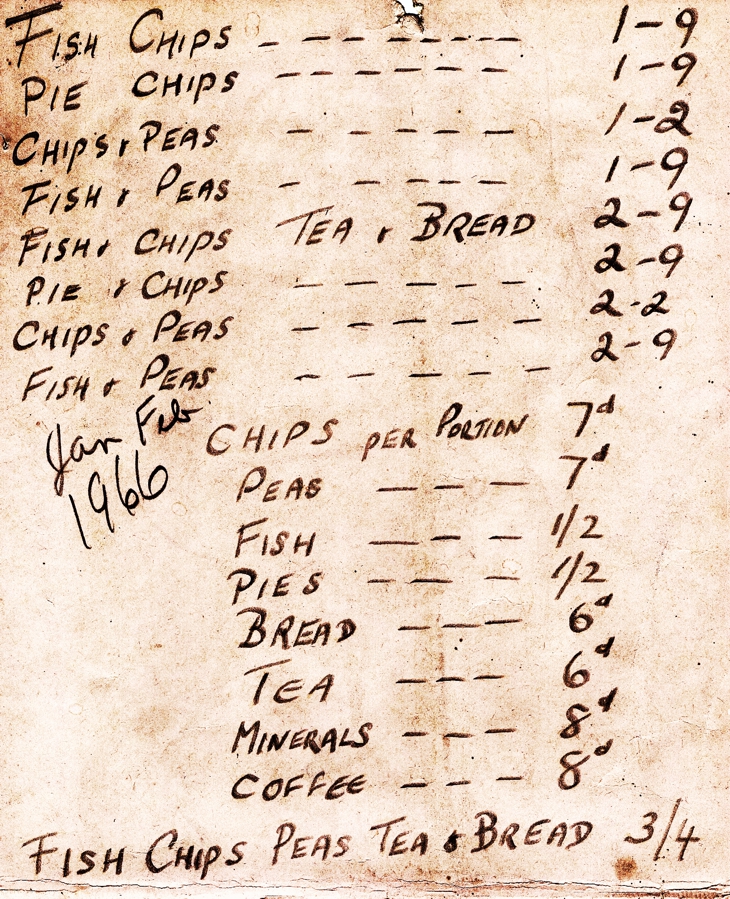 FISH CHIPS - -- ----- 1-9
PIE CHIPS -- -- -- 1-9
CHIPS & PEAS - - -- - 1-2
FISH & PEAS - - --- 1-9
FISH & CHIPS TEA & BREAD 2-9
PIE & CHIPS - - - - - 2-9
CHIPS & PEAS - - - - - 2-2
FISH & PEAS - - - - - 2-9
Jan Feb
1966
CHIPS PER PORTION 7d
PEAS - - - 7d
FISH - - - 1/2
PIES -- - - 1/2
BREAD - -- 6d
TEA --- 6d
MINERALS - - - 8d
COFFEE - - - 8d
FISH CHIPS PEAS TEA & BREAD 3/4